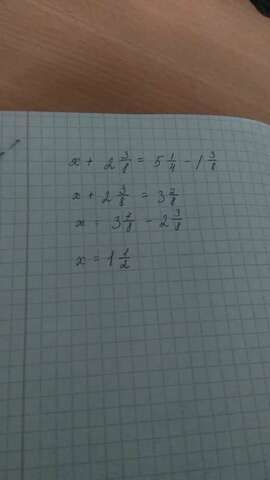 x + 2 3/8 = 5 1/4 - 1 3/8
x + 2 3/8 = 3 7/8
x = 3 7/8 - 2 3/8
x = 1 1/2